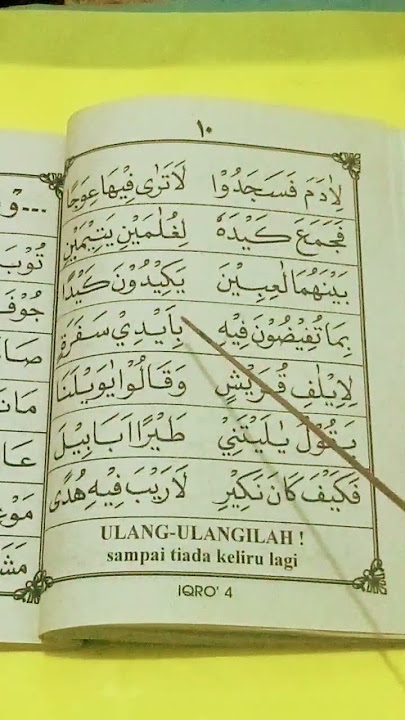 ١٠
لِاٰدَمَ فَسَجَدُوْا لَاتَرٰى فِيْهَا عِوَجًا
فَجَمَعَ كَيْدَهٗ لِغُلٰمَيْنِ يَتِيْمَيْنِ
بَيْنَهُمَا لٰعِبِيْنَ يَكِيْدُوْنَ كَيْدًا
بِمَا تُفِيْضُوْنَ فِيْهِ بِاَيْدِيْ سَفَرَةٍ
لِاِيْلٰفِ قُرَيْشٍ وَقَالُوْا يٰوَيْلَنَا
يَقُوْلُ يٰلَيْتَنِيْ طَيْرًا اَبَابِيْلَ
فَكَيْفَ كَانَ نَكِيْرِ لَارَيْبَ فِيْهِ هُدًى
ULANG-ULANGILAH !
sampai tiada keliru lagi
IQRO' 4